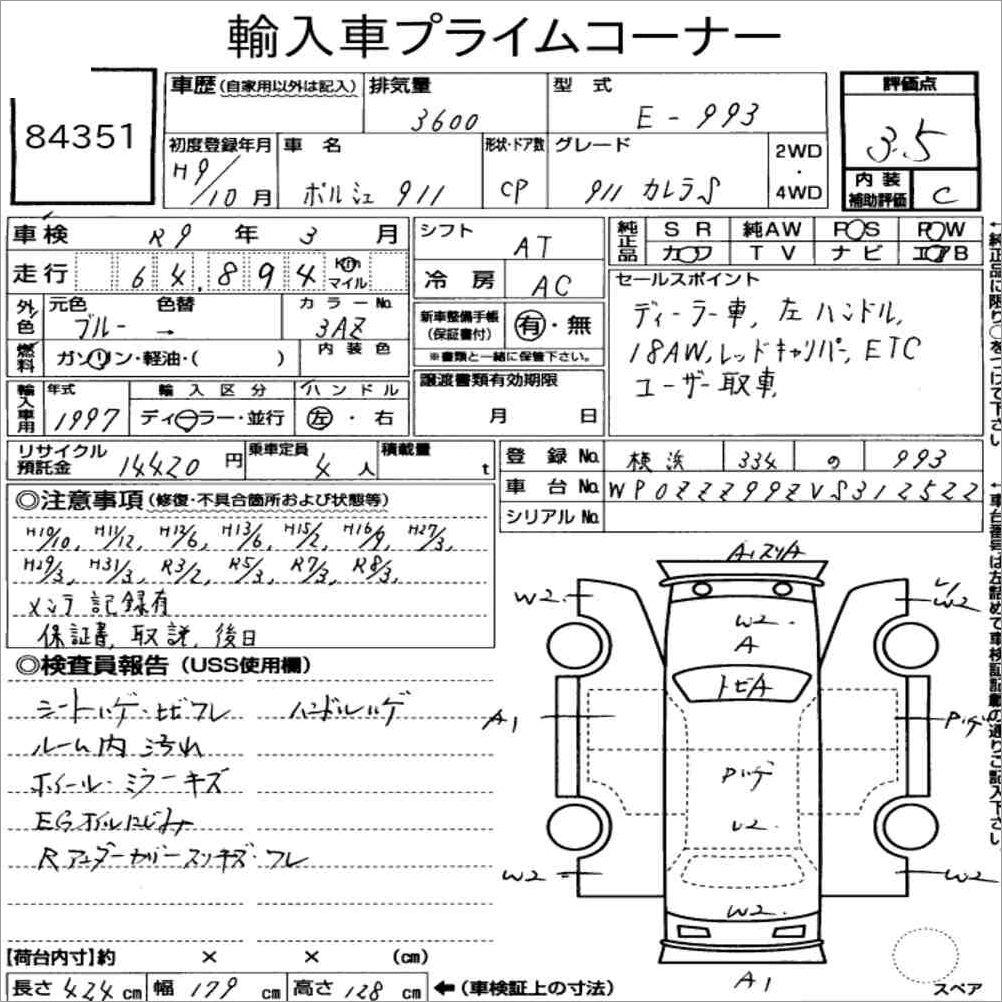 輸入車プライムコーナー
84351
車歴(自家用以外は記入) 排気量 3600 型式 E-993 評価点 3.5
初度登録年月 H9/10月 車名 ポルシェ 911 形状・ドア数 CP グレード 911 カレラS 2WD・4WD 内装補助評価 C
車検 R9年3月 シフト AT 純正品 SR 純AW PS PW
走行 64,894 Km マイル 冷房 AC カワ TV ナビ エアB
外色 元色 ブルー 色替 → カラーNo. 3AZ 新車整備手帳(保証書付) 有・無
※書類と一緒に保管下さい。
セールスポイント
ディーラー車, 左ハンドル,
18AW, レッドキャリパー, ETC
ユーザー取車,
燃料 ガソリン・軽油・( ) 内装色
輸入車用 年式 1997 輸入区分 ディーラー・並行 ハンドル 左・右 譲渡書類有効期限 月 日
リサイクル預託金 14420円 乗車定員 4人 積載量 t
登録No. 横浜 334 の 993
車台No. WP0ZZZ99ZVS312522
シリアルNo.
◎注意事項(修復・不具合箇所および状態等)
H10/10, H11/12, H12/6, H13/6, H15/2, H16/9, H27/3,
H29/3, H31/3, R3/2, R5/3, R7/3, R8/3,
メンテ記録有
保証書, 取説, 後日
◎検査員報告(USS使用欄)
シートハゲ・ヒビワレ ハンドルハゲ
ルーム内汚れ
ホイール・ミラーキズ
EGオイルにじみ
Rアンダーカバースリキズ・ワレ
A1スリA
W2
W2
W2
A
トビA
A1
Pハゲ
Pハゲ
U2
W2
W2
W2
A1
スペア
【荷台内寸】約 × × (cm)
長さ 424cm 幅 179cm 高さ 128cm ←(車検証上の寸法)
←純正品に限り○をつけて下さい
←車台番号は左詰めで車検証記載の通りご記入下さい